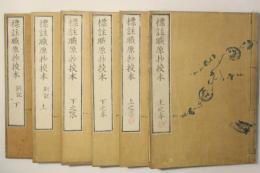 標註職原抄校本 上之本
標註職原抄校本 上之末
標註職原抄校本 下之本
標註職原抄校本 下之末
標註職原抄校本 別記 上
標註職原抄校本 別記 下